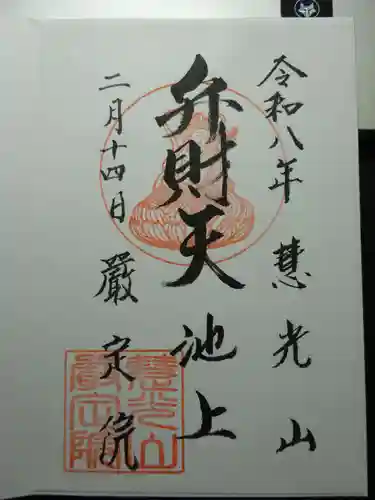 令和八年 慧光山
弁財天 池上
二月十四日 嚴定院
慧光山
嚴定院